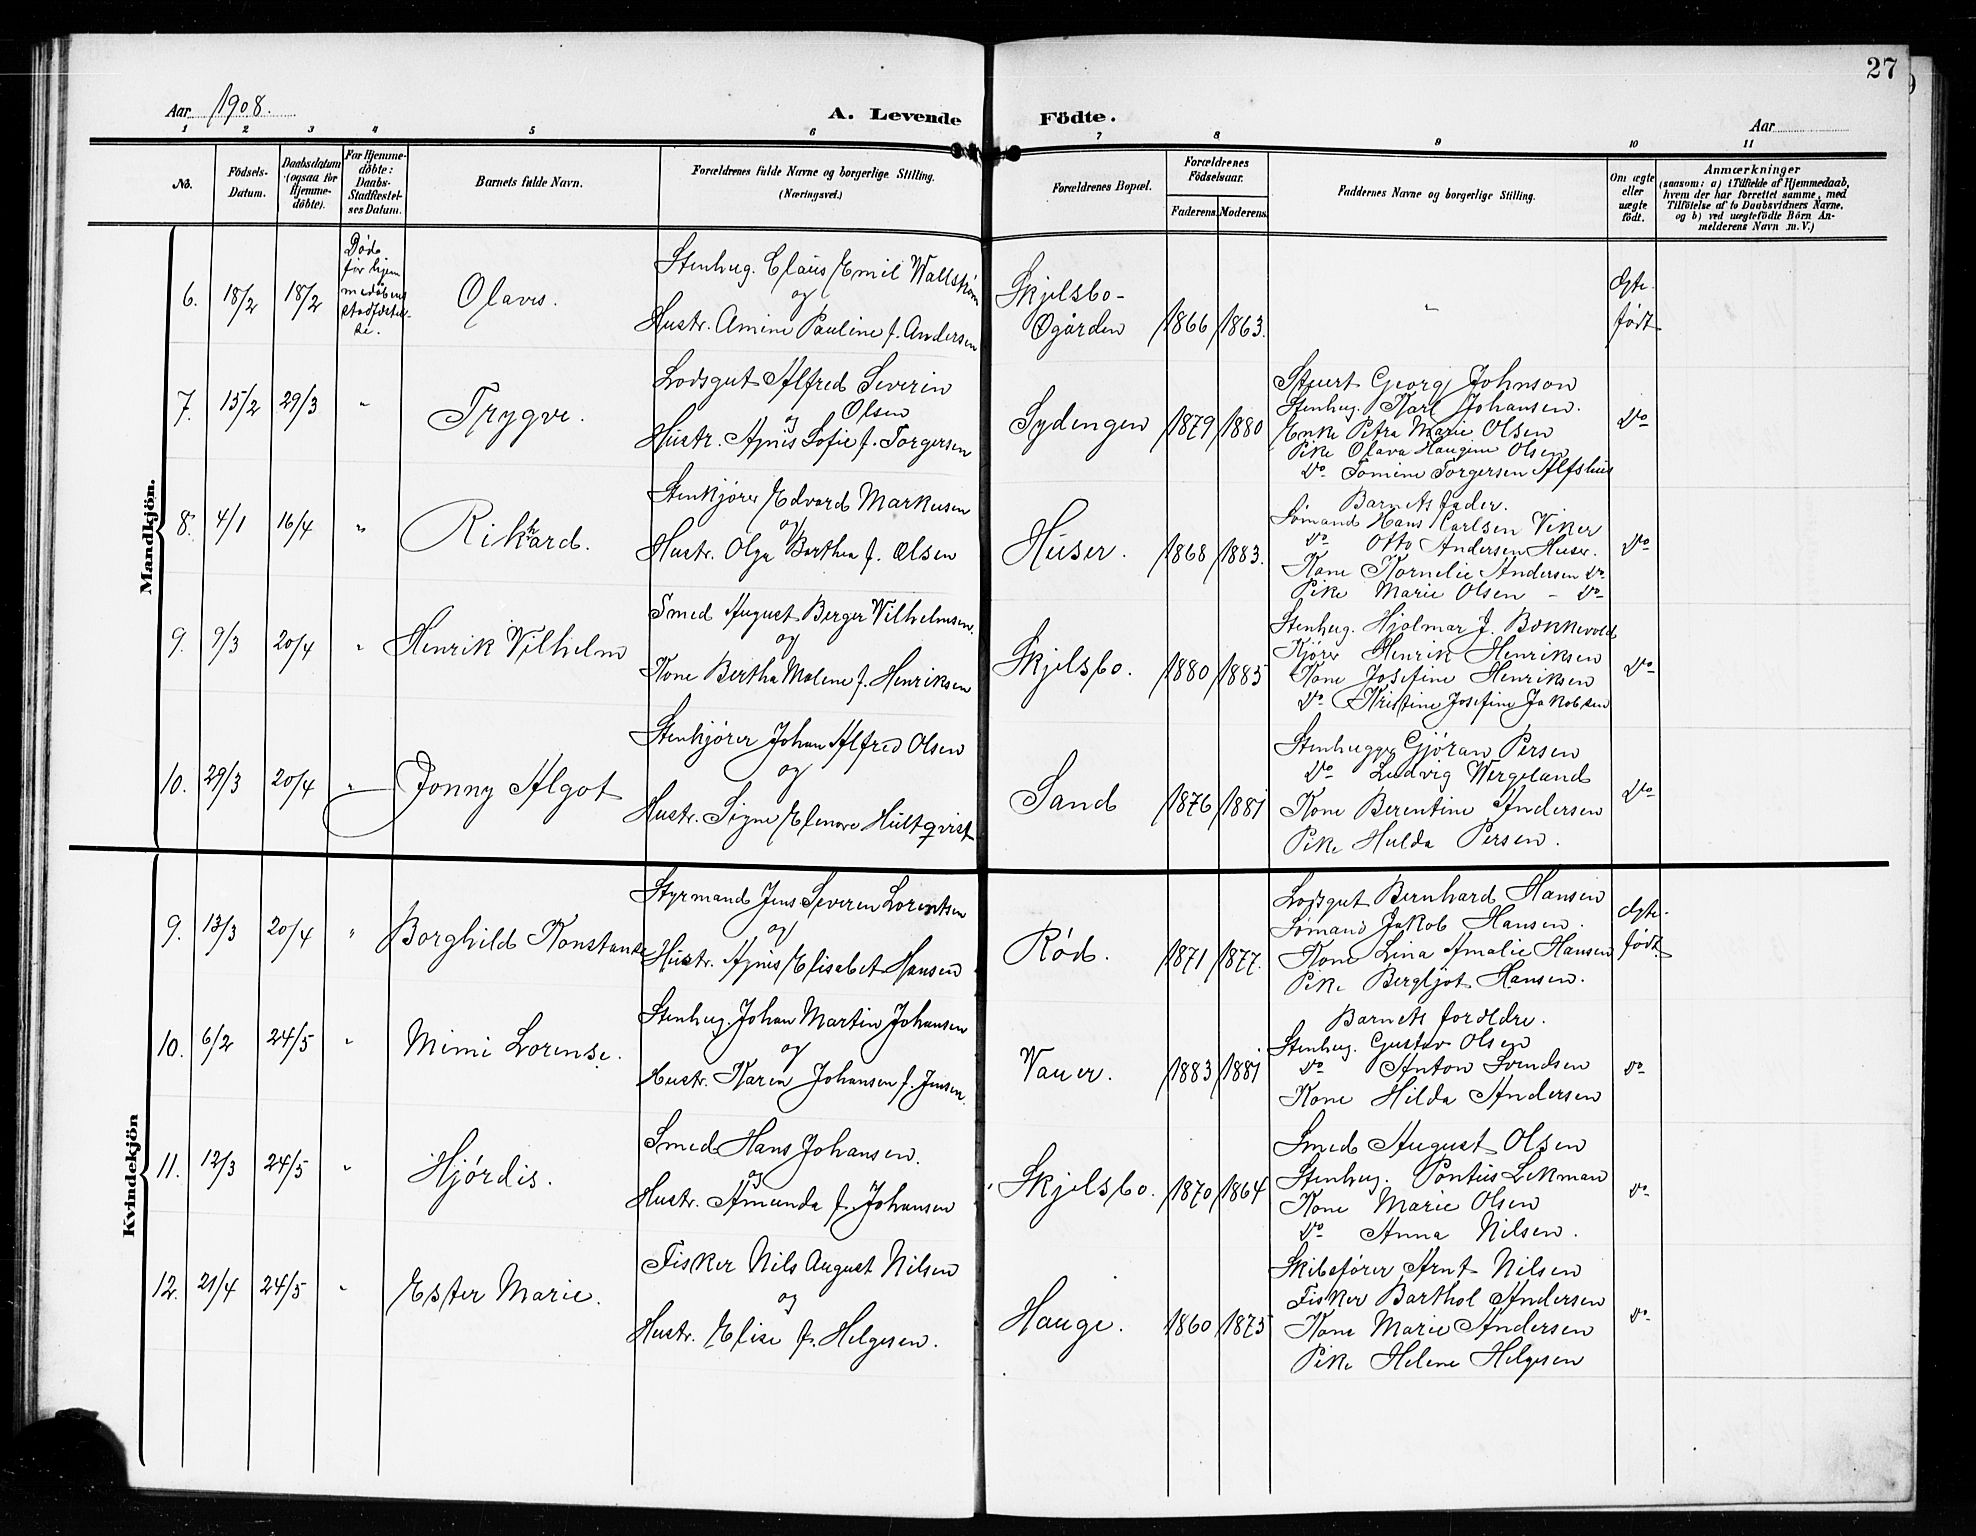 27
Aar 1908.
A. Levende Födte.
Aar
1 2 3 4 5 6 7 8 9 10 11
No.
Födsels-
Datum.
Daabsdatum
(ogsaa for
Hjemme-
döbte).
For Hjemme-
döbte:
Daabs-
Stadfæstel-
ses Datum.
Barnets fulde Navn.
Forældrenes fulde Navne og borgerlige Stilling.
(Næringsvei.)
Forældrenes Bopæl.
Forældrenes
Födselsaar.
Faderens. Moderens.
Faddernes Navne og borgerlige Stilling.
Om ægte
eller
uægte
födt.
Anmærkninger
(saasom: a) i Tilfælde af Hjemmedaab,
hvem der har forrettet samme, med
Tilföielse af to Daabsvidners Navne.
og b) ved uægtefödte Börn An-
melderens Navn m. V.)
Mandkjön.
6. 18/2 18/2
Døde
før hjem
medøbens
stadfæstel-
se.
Olaves.
Stenhug. Claus Emil Wallstrøm
og
Hustr. Amine Pauline f. Andersen
Skjelsbo-
Øgården
1866 1863.
"
Ægte-
født
7. 15/2 29/3 "
Trygve.
Lodsgut Alfred Severin
Olsen
og
Hustr. Agnes Sofie f. Torgersen
Sydengen
1879 1880
Stuert Georg Johnson
Stenhug. Karl Johansen.
Enke Petra Marie Olsen
Pike Olava Haugine Olsen
Do Tomine Torgersen Alfshus
Do
8. 4/1 16/4 "
Rikhard.
Stenkjører Edvard Markusen
og
Hustr. Olga Barthea f. Olsen
Húser.
1868 1883.
Barnets fader.
Sømand Hans Carlsen Viker
Do Otto Andersen Huser.
Kone Kornelie Andersen Do.
Pike Marie Olsen - Do
Do
9. 9/3 20/4 "
Henrik Vilhelm
Smed August Berger Vilhelmsen.
og
Kone Bertha Malene f. Henriksen
Skjelsbo.
1880 1885
Stenhug. Hjalmar J. Bokkevold
Kjører Henrik Henriksen
Kone Josefine Henriksen
Do Kristine Josefine Jakobsen
Do
10. 29/3 20/4 "
Jonny Algot
Stenkjører Johan Alfred Olsen
og
Hustr. Signe Elenore Hultqvist
Sand
1876 1881
Stenhugger Gjøran Persen
Do Ludvig Wergeland
Kone Berentine Andersen
Pike Hulda Persen.
Do
Kvindekjön
9. 13/3 20/4 "
Borghild Konstanse
Styrmand Jens Severen Lorentsen
og
Hustr. Agnes Elisabet Hansen
Rød.
1871 1877.
Lodsgut Bernhard Hansen
Sømand Jakob Hansen.
Kone Lina Amalie Hansen
Pike Bergljot Hansen.
Ægte-
født
10. 6/2 24/5 "
Mimi Lorense.
Stenhug. Johan Martin Johansen
og
Hustr. Karen Johansen f. Jensen.
Vauer.
1883 1881
Barnets forældre.
Stenhug. Gustav Olsen
Do Anton Svendsen
Kone Hilda Andersen
Do
11. 12/3 24/5 "
Hjørdis.
Smed Hans Johansen.
og
Hustr. Amunda f. Johansen
Skjelsbo.
1870 1864
Smed August Olsen
Stenhug. Pontus Ekman
Kone Marie Olsen
Do Anna Nilsen.
Do
12. 21/4 24/5 "
Ester Marie.
Fisker Nils August Nilsen
og
Hustr. Elise f. Helgesen.
Hauge.
1860 1875
Skibsfører Arnt Nilsen
Fisker Barthol Andersen
Kone Marie Andersen
Pike Helene Helgesen
Do